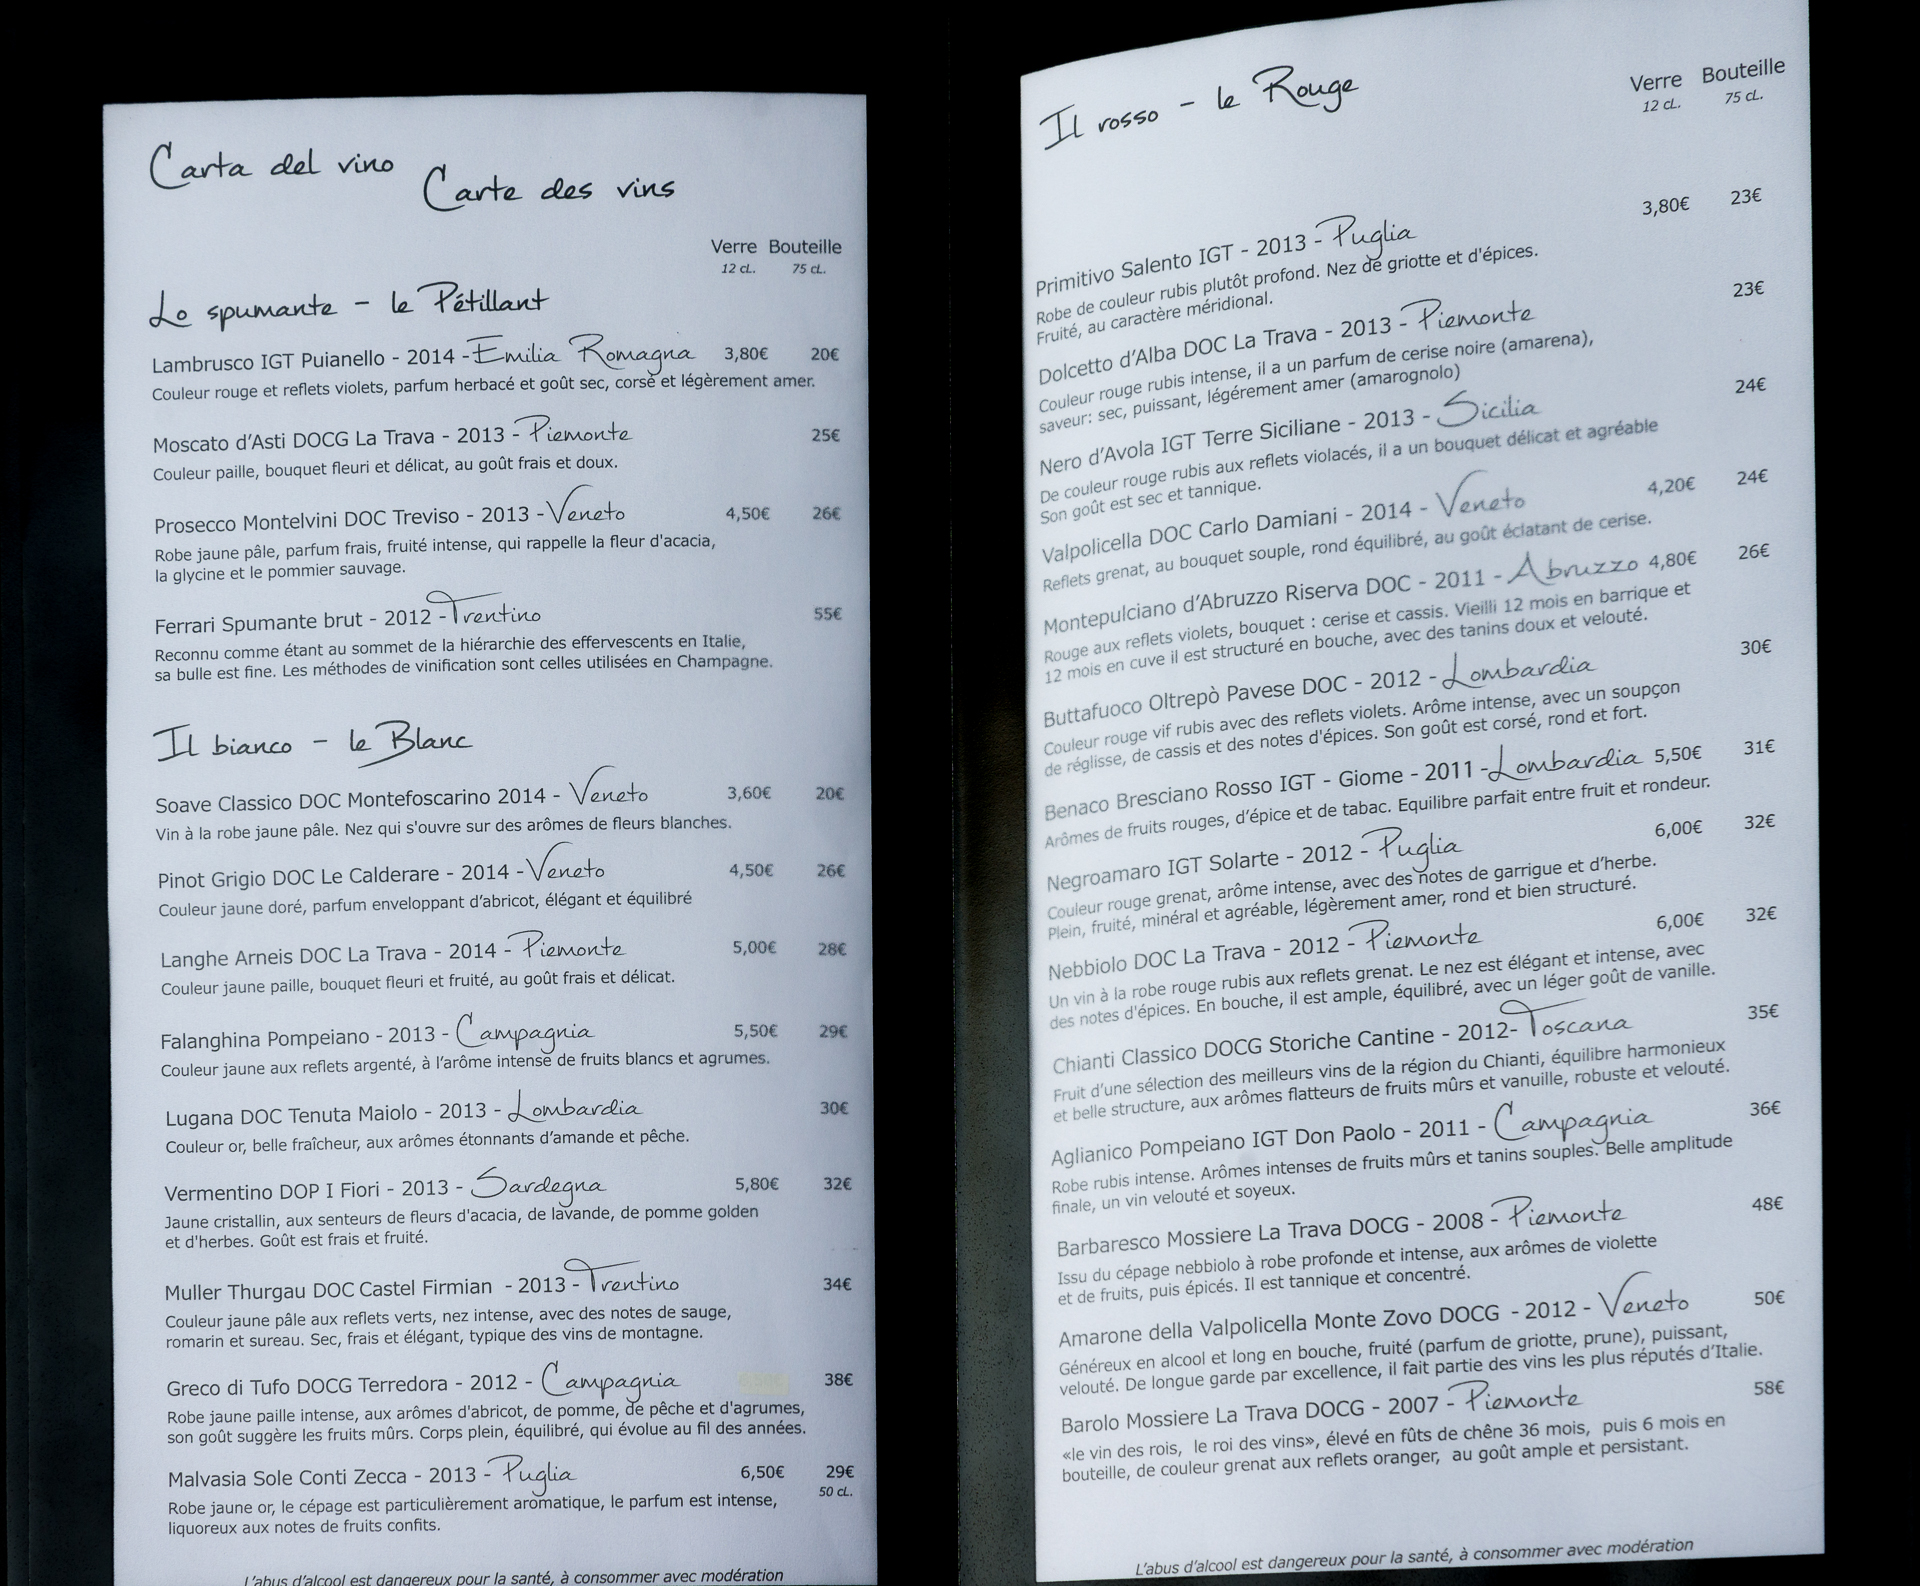 Carta del vino
Carte des vins
Verre Bouteille
12 cL. 75 cL.
Lo spumante - le Pétillant
Lambrusco IGT Puianello - 2014 - Emilia Romagna 3,80€ 20€
Couleur rouge et reflets violets, parfum herbacé et goût sec, corsé et légèrement amer.
Moscato d'Asti DOCG La Trava - 2013 - Piemonte 25€
Couleur paille, bouquet fleuri et délicat, au goût frais et doux.
Prosecco Montelvini DOC Treviso - 2013 - Veneto 4,50€ 26€
Robe jaune pâle, parfum frais, fruité intense, qui rappelle la fleur d'acacia,
la glycine et le pommier sauvage.
Ferrari Spumante brut - 2012 - Trentino 55€
Reconnu comme étant au sommet de la hiérarchie des effervescents en Italie,
sa bulle est fine. Les méthodes de vinification sont celles utilisées en Champagne.
Il bianco - le Blanc
Soave Classico DOC Montefoscarino 2014 - Veneto 3,60€ 20€
Vin à la robe jaune pâle. Nez qui s'ouvre sur des arômes de fleurs blanches.
Pinot Grigio DOC Le Calderare - 2014 - Veneto 4,50€ 26€
Couleur jaune doré, parfum enveloppant d'abricot, élégant et équilibré
Langhe Arneis DOC La Trava - 2014 - Piemonte 5,00€ 28€
Couleur jaune paille, bouquet fleuri et fruité, au goût frais et délicat.
Falanghina Pompeiano - 2013 - Campagnia 5,50€ 29€
Couleur jaune aux reflets argenté, à l'arôme intense de fruits blancs et agrumes.
Lugana DOC Tenuta Maiolo - 2013 - Lombardia 30€
Couleur or, belle fraîcheur, aux arômes étonnants d'amande et pêche.
Vermentino DOP I Fiori - 2013 - Sardegna 5,80€ 32€
Jaune cristallin, aux senteurs de fleurs d'acacia, de lavande, de pomme golden
et d'herbes. Goût est frais et fruité.
Muller Thurgau DOC Castel Firmian - 2013 - Trentino 34€
Couleur jaune pâle aux reflets verts, nez intense, avec des notes de sauge,
romarin et sureau. Sec, frais et élégant, typique des vins de montagne.
Greco di Tufo DOCG Terredora - 2012 - Campagnia 38€
Robe jaune paille intense, aux arômes d'abricot, de pomme, de pêche et d'agrumes,
son goût suggère les fruits mûrs. Corps plein, équilibré, qui évolue au fil des années.
Malvasia Sole Conti Zecca - 2013 - Puglia 6,50€ 29€
50 cL.
Robe jaune or, le cépage est particulièrement aromatique, le parfum est intense,
liquoreux aux notes de fruits confits.
L'abus d'alcool est dangereux pour la santé, à consommer avec modération
Il rosso - le Rouge
Verre Bouteille
12 cL. 75 cL.
Primitivo Salento IGT - 2013 - Puglia 3,80€ 23€
Robe de couleur rubis plutôt profond. Nez de griotte et d'épices.
Fruité, au caractère méridional.
Dolcetto d'Alba DOC La Trava - 2013 - Piemonte 23€
Couleur rouge rubis intense, il a un parfum de cerise noire (amarena),
saveur: sec, puissant, légérement amer (amarognolo)
Nero d'Avola IGT Terre Siciliane - 2013 - Sicilia 24€
De couleur rouge rubis aux reflets violacés, il a un bouquet délicat et agréable
Son goût est sec et tannique.
Valpolicella DOC Carlo Damiani - 2014 - Veneto 4,20€ 24€
Reflets grenat, au bouquet souple, rond équilibré, au goût éclatant de cerise.
Montepulciano d'Abruzzo Riserva DOC - 2011 - Abruzzo 4,80€ 26€
Rouge aux reflets violets, bouquet : cerise et cassis. Vieilli 12 mois en barrique et
12 mois en cuve il est structuré en bouche, avec des tanins doux et velouté.
Buttafuoco Oltrepò Pavese DOC - 2012 - Lombardia 30€
Couleur rouge vif rubis avec des reflets violets. Arôme intense, avec un soupçon
de réglisse, de cassis et des notes d'épices. Son goût est corsé, rond et fort.
Benaco Bresciano Rosso IGT - Giome - 2011 - Lombardia 5,50€ 31€
Arômes de fruits rouges, d'épice et de tabac. Equilibre parfait entre fruit et rondeur.
Negroamaro IGT Solarte - 2012 - Puglia 6,00€ 32€
Couleur rouge grenat, arôme intense, avec des notes de garrigue et d'herbe.
Plein, fruité, minéral et agréable, légèrement amer, rond et bien structuré.
Nebbiolo DOC La Trava - 2012 - Piemonte 6,00€ 32€
Un vin à la robe rouge rubis aux reflets grenat. Le nez est élégant et intense, avec
des notes d'épices. En bouche, il est ample, équilibré, avec un léger goût de vanille.
Chianti Classico DOCG Storiche Cantine - 2012- Toscana 35€
Fruit d'une sélection des meilleurs vins de la région du Chianti, équilibre harmonieux
et belle structure, aux arômes flatteurs de fruits mûrs et vanuille, robuste et velouté.
Aglianico Pompeiano IGT Don Paolo - 2011 - Campagnia 36€
Robe rubis intense. Arômes intenses de fruits mûrs et tanins souples. Belle amplitude
finale, un vin velouté et soyeux.
Barbaresco Mossiere La Trava DOCG - 2008 - Piemonte 48€
Issu du cépage nebbiolo à robe profonde et intense, aux arômes de violette
et de fruits, puis épicés. Il est tannique et concentré.
Amarone della Valpolicella Monte Zovo DOCG - 2012 - Veneto 50€
Généreux en alcool et long en bouche, fruité (parfum de griotte, prune), puissant,
velouté. De longue garde par excellence, il fait partie des vins les plus réputés d'Italie.
Barolo Mossiere La Trava DOCG - 2007 - Piemonte 58€
«le vin des rois, le roi des vins», élevé en fûts de chêne 36 mois, puis 6 mois en
bouteille, de couleur grenat aux reflets oranger, au goût ample et persistant.
L'abus d'alcool est dangereux pour la santé, à consommer avec modération